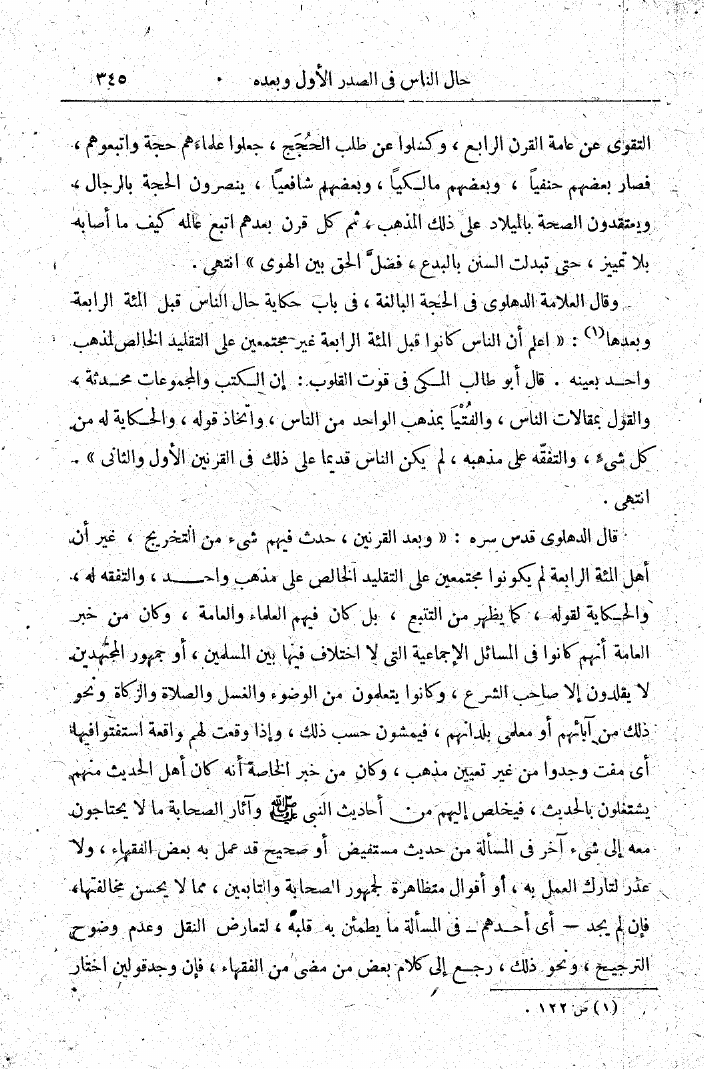 حال الناس فى الصدر الأول وبعده ٣٤٥
التقوى عن عامة القرن الرابع ، وكسلوا عن طلب الحُجَج ، جعلوا علماءهم حجة واتبعوهم ،
فصار بعضهم حنفياً ، وبعضهم مالكياً ، وبعضهم شافعياً ، ينصرون الحجة بالرجال ،
ويعتقدون الصحة بالميلاد على ذلك المذهب ، ثم كل قرن بعدهم اتبع عالمه كيف ما أصابه
بلا تمييز ، حتى تبدلت السنن بالبدع ، فضلَّ الحق بين الهوى » انتهى .
وقال العلامة الدهلوى فى الحجة البالغة ، فى باب حكاية حال الناس قبل المئة الرابعة
وبعدها(١) : « اعلم أن الناس كانوا قبل المئة الرابعة غير مجتمعين على التقليد الخالص لمذهب
واحد بعينه . قال أبو طالب المكى فى قوت القلوب : إن الكتب والمجموعات محدثة ،
والقول بمقالات الناس ، والفُتْيَا بمذهب الواحد من الناس ، واتخاذ قوله ، والحكاية له من
كل شىء ، والتفقّه على مذهبه ، لم يكن الناس قديما على ذلك فى القرنين الأول والثانى » .
انتهى .
قال الدهلوى قدس سره : « وبعد القرنين ، حدث فيهم شىء من التخريج ، غير أن
أهل المئة الرابعة لم يكونوا مجتمعين على التقليد الخالص على مذهب واحد ، والتفقه له ،
والحكاية لقوله ، كما يظهر من التتبع ، بل كان فيهم العلماء والعامة ، وكان من خبر
العامة أنهم كانوا فى المسائل الإجماعية التى لا اختلاف فيها بين المسلمين ، أو جمهور المجتهدين
لا يقلدون إلا صاحب الشرع ، وكانوا يتعلمون من الوضوء والغسل والصلاة والزكاة ونحو
ذلك من آبائهم أو معلمى بلدانهم ، فيمشون حسب ذلك ، وإذا وقعت لهم واقعة استفتوا فيها
أى مفت وجدوا من غير تعيين مذهب ، وكان من خبر الخاصة أنه كان أهل الحديث منهم
يشتغلون بالحديث ، فيخلص إليهم من أحاديث النبى ﷺ وآثار الصحابة ما لا يحتاجون
معه إلى شىء آخر فى المسألة من حديث مستفيض أو صحيح قد عمل به بعض الفقهاء ، ولا
عذر لتارك العمل به ، أو أقوال متظاهرة لجمهور الصحابة والتابعين ، مما لا يحسن مخالفتها ،
فإن لم يجد — أى أحدهم — فى المسألة ما يطمئن به قلبه ، لتعارض النقل وعدم وضوح
الترجيح ، ونحو ذلك ، رجع إلى كلام بعض من مضى من الفقهاء ، فإن وجد قولين اختار
(١) ص ١٢٢ .